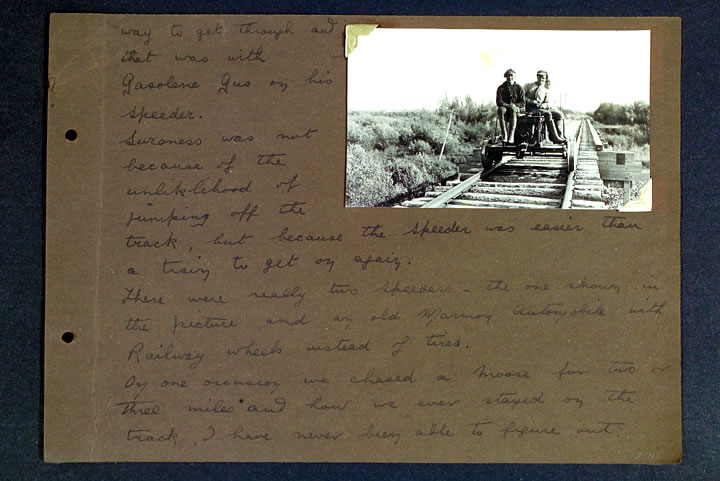 way to get through and
that was with
Gasolene Gus on his
speeder.
Sureness was not
because of the
unliklihood of
jumping off the
track, but because the speeder was easier than
a train to get on again.
There were really two speeders - the one shown in
the picture and an old Marmon Automobile with
Railway wheels instead of tires.
On one occasion we chased a Moose for two or
three miles and how we ever stayed on the
track, I have never been able to figure out.